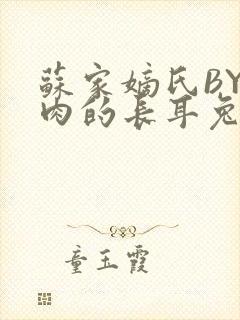 蘇家嫡氏BY
肉的長耳兔
童玉霞